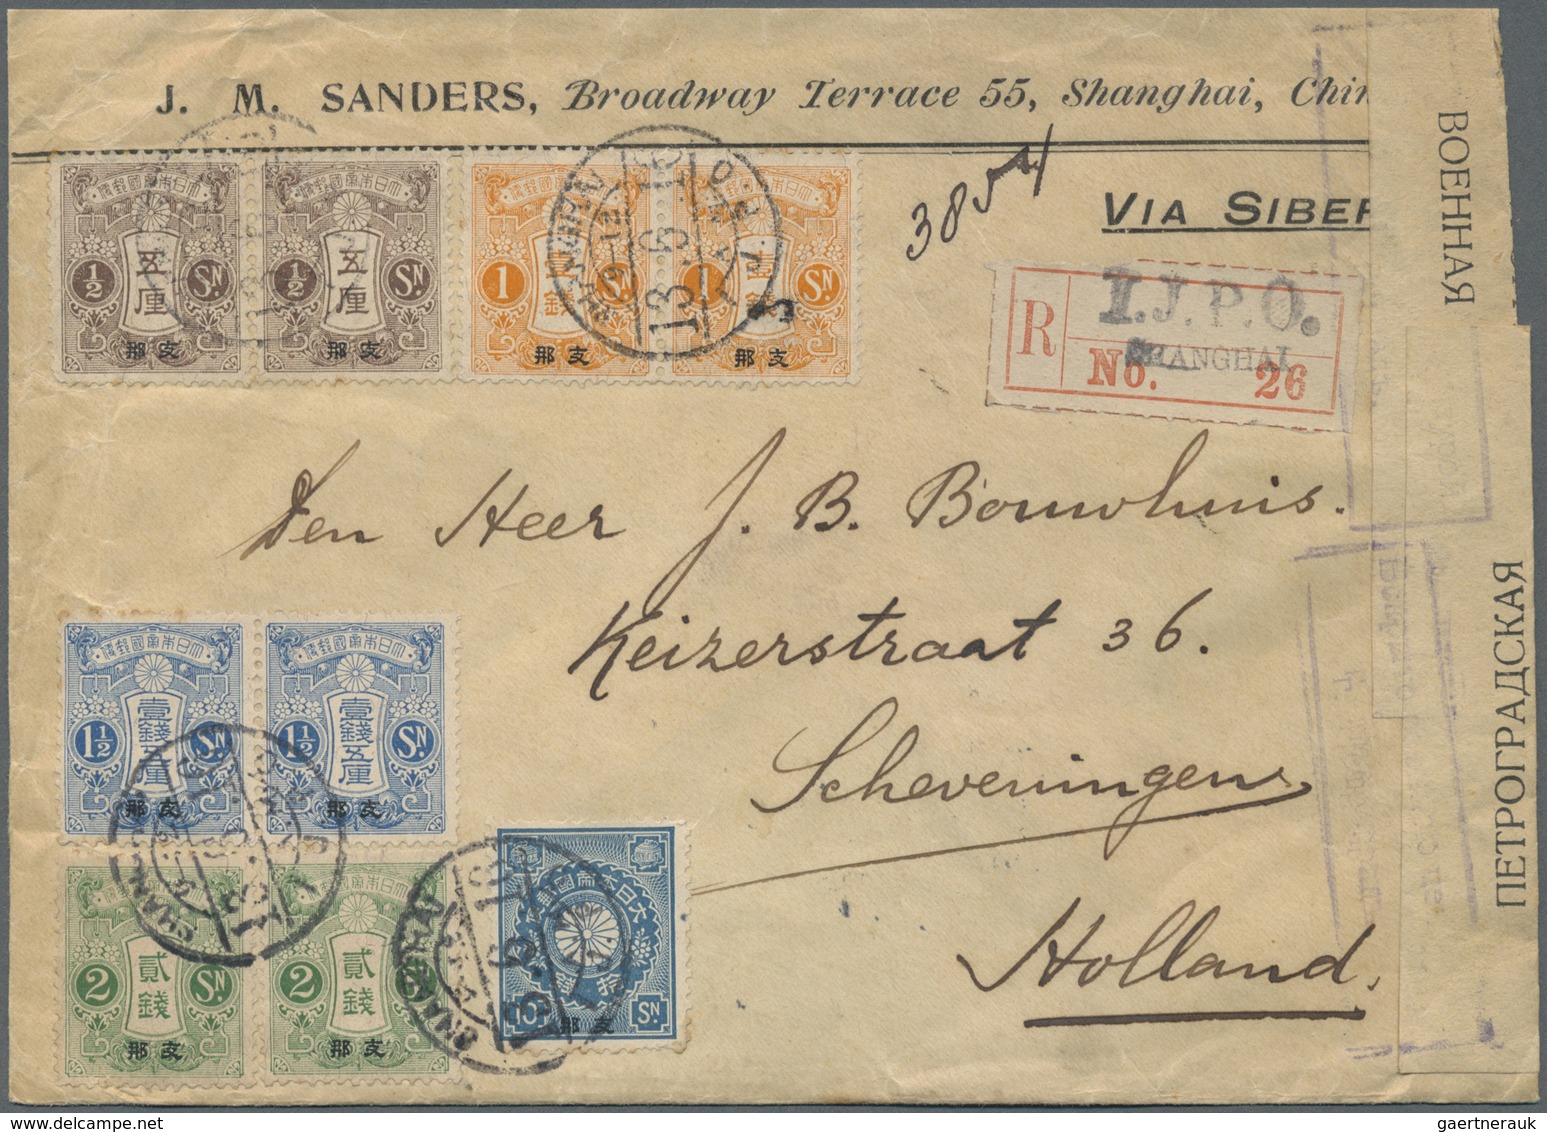 J. M. SANDERS, Broadway Terrace 55, Shanghai, Chin
VIA SIBER
3854
ВОЕННАЯ
ПЕТРОГРАДСКАЯ
R
I.J.P.O.
SHANGHAI
No. 26
Den Heer J. B. Bouwhuis.
Keizerstraat 36.
Scheveningen
Holland.
大日本帝國郵便
½ 五厘 SN
支那
大日本帝國郵便
½ 五厘 SN
支那
大日本帝國郵便
1 壹錢 SN
支那
大日本帝國郵便
1 壹錢 SN
支那
SHANGHAI
13.6.16
I.J.P.O.
大日本帝國郵便
1½ 壹錢五厘 SN
支那
大日本帝國郵便
1½ 壹錢五厘 SN
支那
大日本帝國郵便
2 貳錢 SN
支那
大日本帝國郵便
2 貳錢 SN
支那
SHANGHAI
大日本帝國郵便
10 SN
支那
SHANGHAI
gaertnerauk